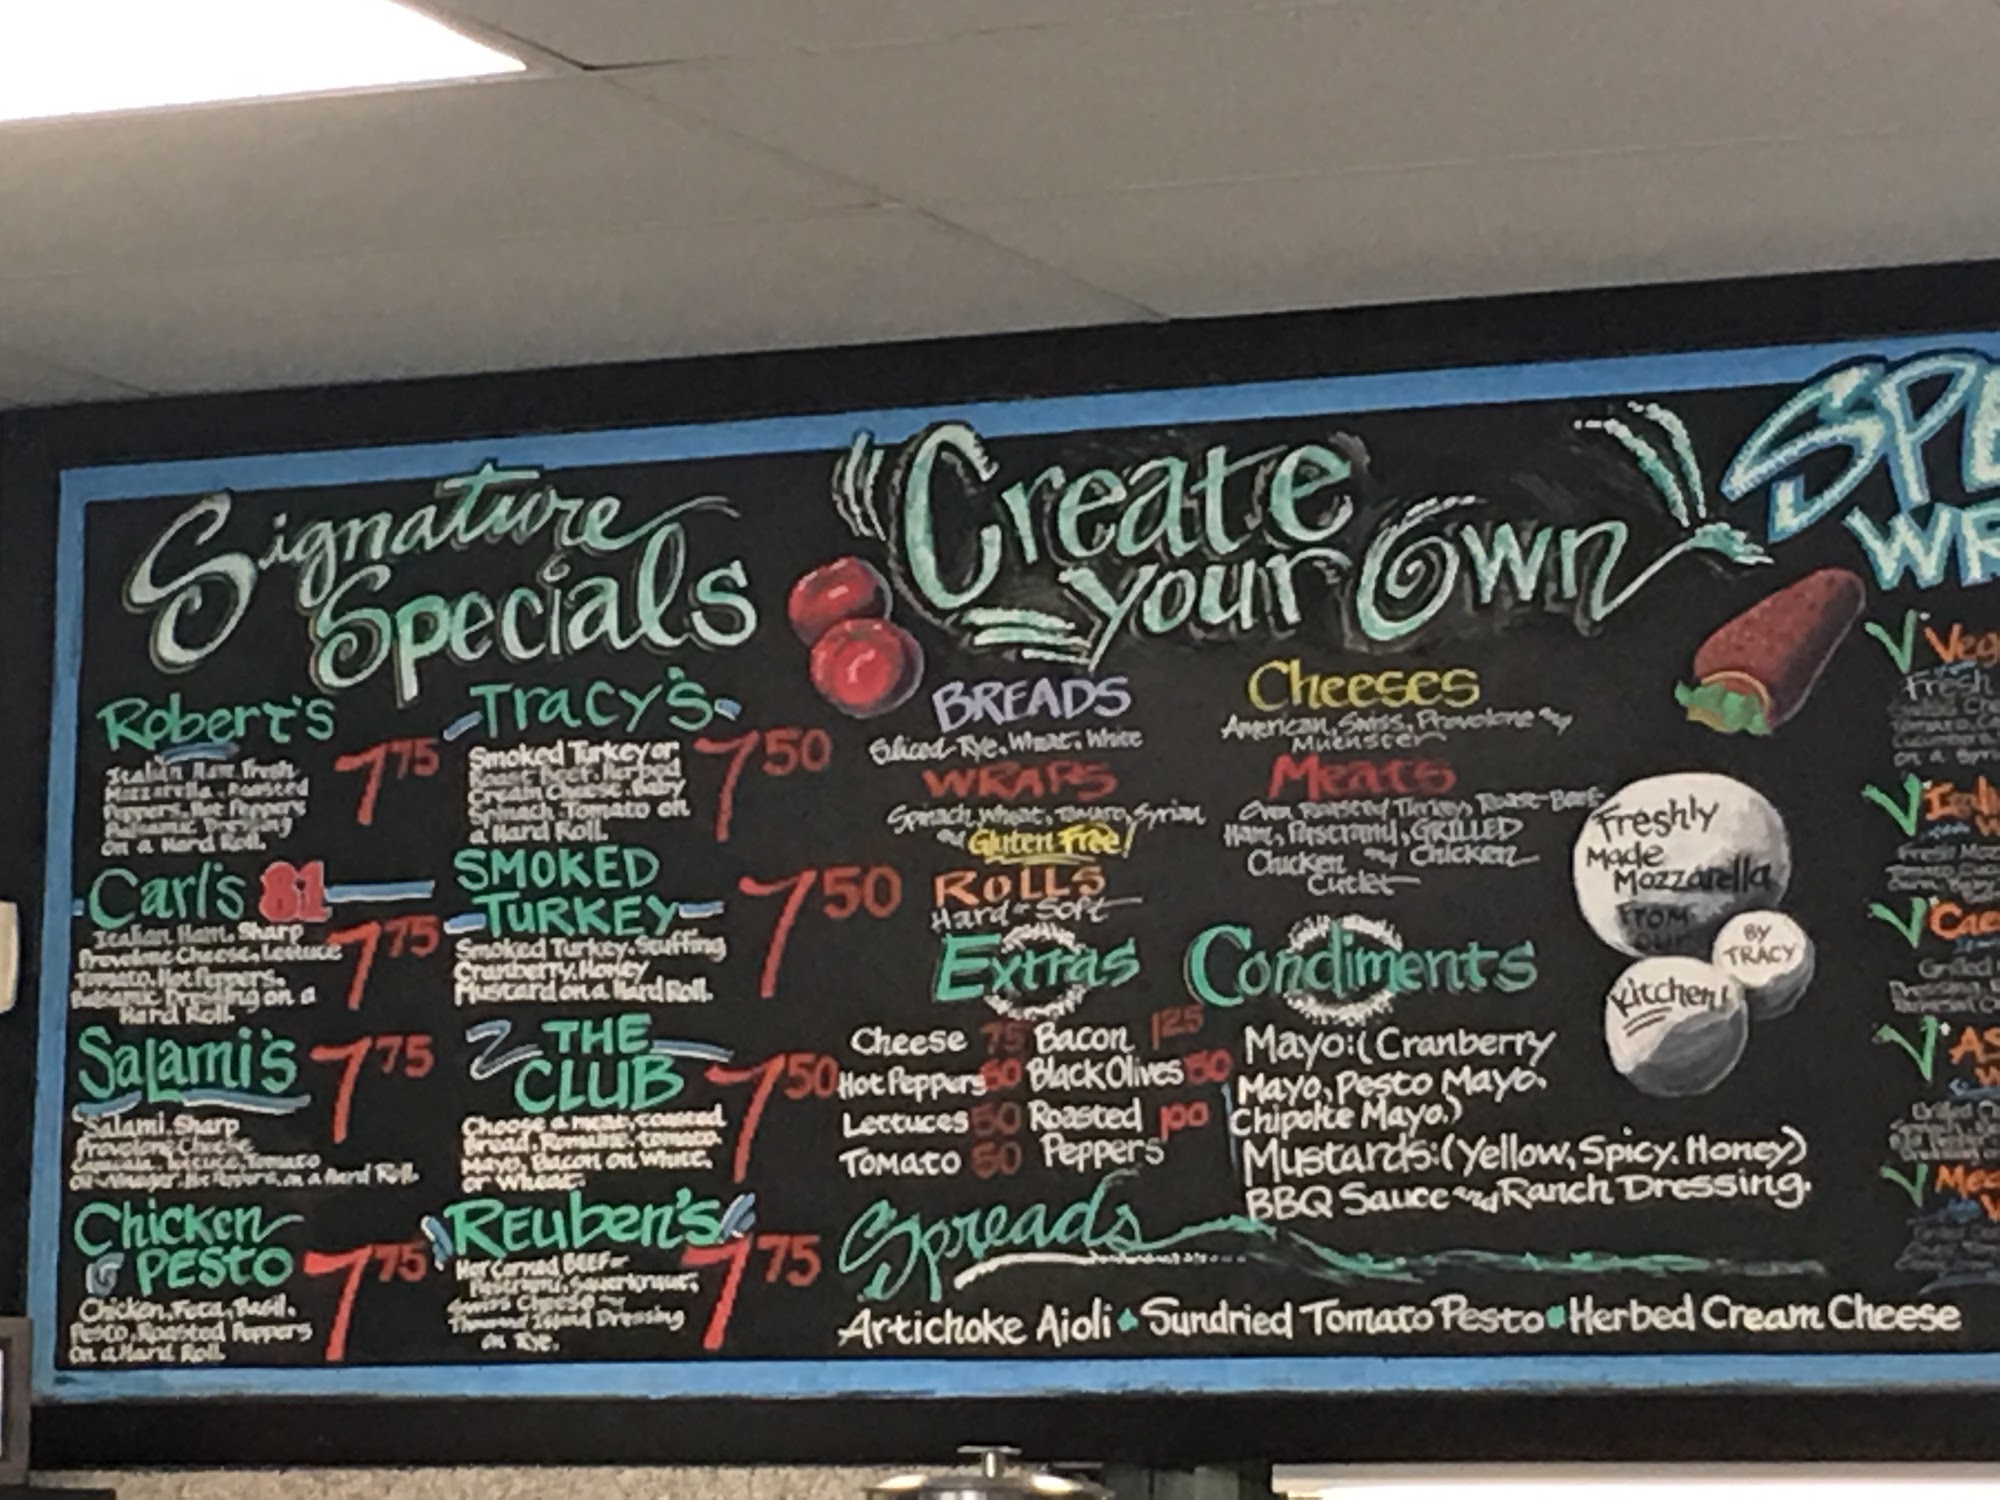 Signature
Specials
Robert's
775
Italian Ham, Fresh
Mozzarella, Roasted
Peppers, Hot Peppers
Balsamic Dressing
on a Hard Roll.
Carl's 81
775
Italian Ham, Sharp
Provolone Cheese, Lettuce
Tomato, Hot Peppers,
Balsamic Dressing on a
Hard Roll.
Salami's
775
Salami, Sharp
Provolone Cheese
Lettuce, Tomato
Hot Peppers, on a Hard Roll.
Chicken
PESTO
775
Chicken, Feta, Basil,
Pesto, Roasted Peppers
On a Hard Roll.
Tracy's
750
Smoked Turkey or
Roast Beef, Herbed
Cream Cheese, Baby
Spinach, Tomato on
a Hard Roll.
SMOKED
TURKEY
750
Smoked Turkey, Stuffing
Cranberry, Honey
Mustard on a Hard Roll.
THE
CLUB
750
Choose a meat, toasted
Bread, Romaine, tomato,
Mayo, Bacon on White,
or Wheat.
REuben's
775
Hot Corned BEEF or
Pastrami, Sauerkraut,
Swiss Cheese
Thousand Island Dressing
on Rye.
Create
your Own
BREADS
Sliced-Rye, Wheat, White
WRAPS
Spinach, Wheat, Tomato, Syrian
and Gluten Free!
ROLLS
Hard or Soft
Cheeses
American, Swiss, Provolone and
Muenster
Meats
Oven Roasted Turkey, Roast-Beef
Ham, Pastrami, GRILLED
Chicken and Chicken
Cutlet
Extras
Cheese 75 Bacon 125
Hot Peppers 50 Black Olives 50
Lettuces 50 Roasted 100
Tomato 50 Peppers
Condiments
Mayo: (Cranberry
Mayo, Pesto Mayo,
Chipolte Mayo.)
Mustards: (Yellow, Spicy, Honey)
BBQ Sauce and Ranch Dressing.
Spreads
Artichoke Aioli Sundried Tomato Pesto Herbed Cream Cheese
Freshly
Made
Mozzarella
From
our
Kitchen!
BY
TRACY
SPE
WR
Veg
Fresh
Cae
Grilled